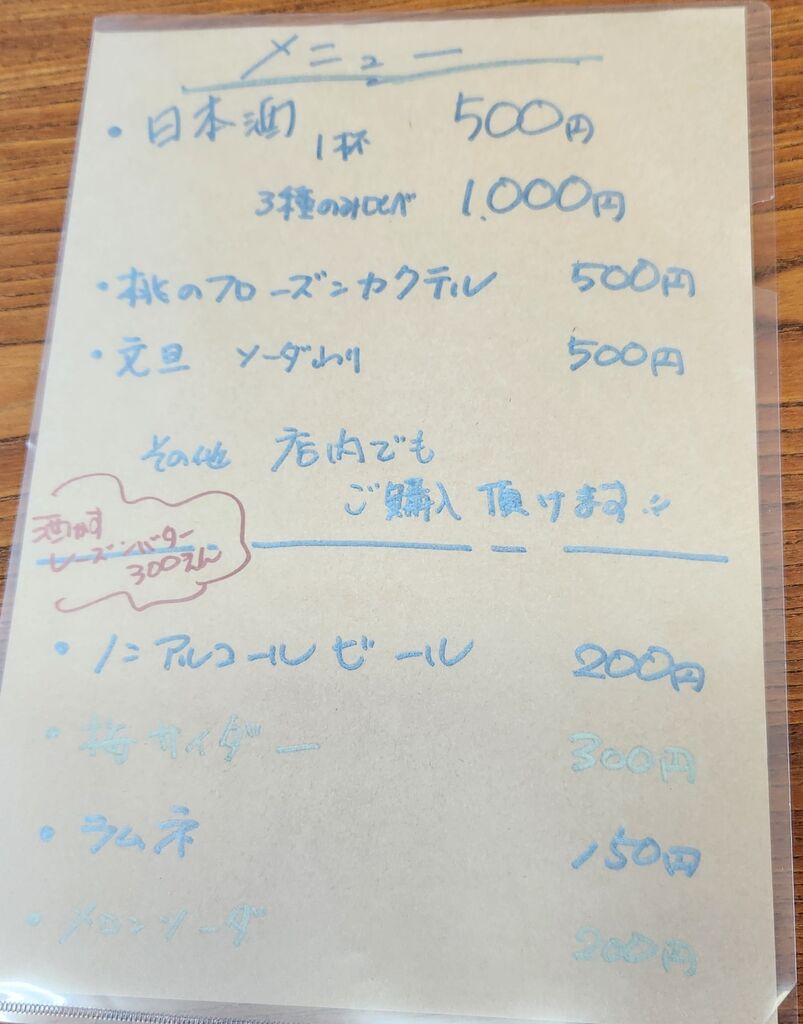 メニュー
・日本酒 1杯 500円
3種のみ比べ 1,000円
・桃のフローズンカクテル 500円
・文旦 ソーダわり 500円
その他 店内でも
ご購入頂けます
酒かす
レーズンバター
300えん
・ノンアルコールビール 200円
・梅サイダー 300円
・ラムネ 150円
・メロンソーダ 200円